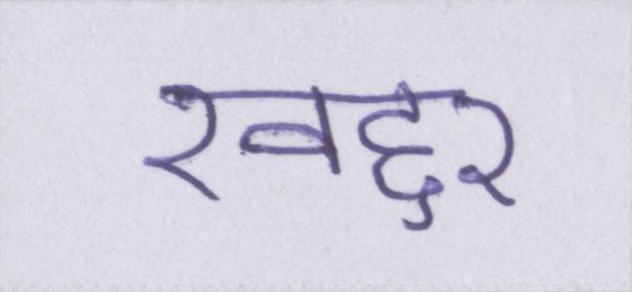 खद्दर